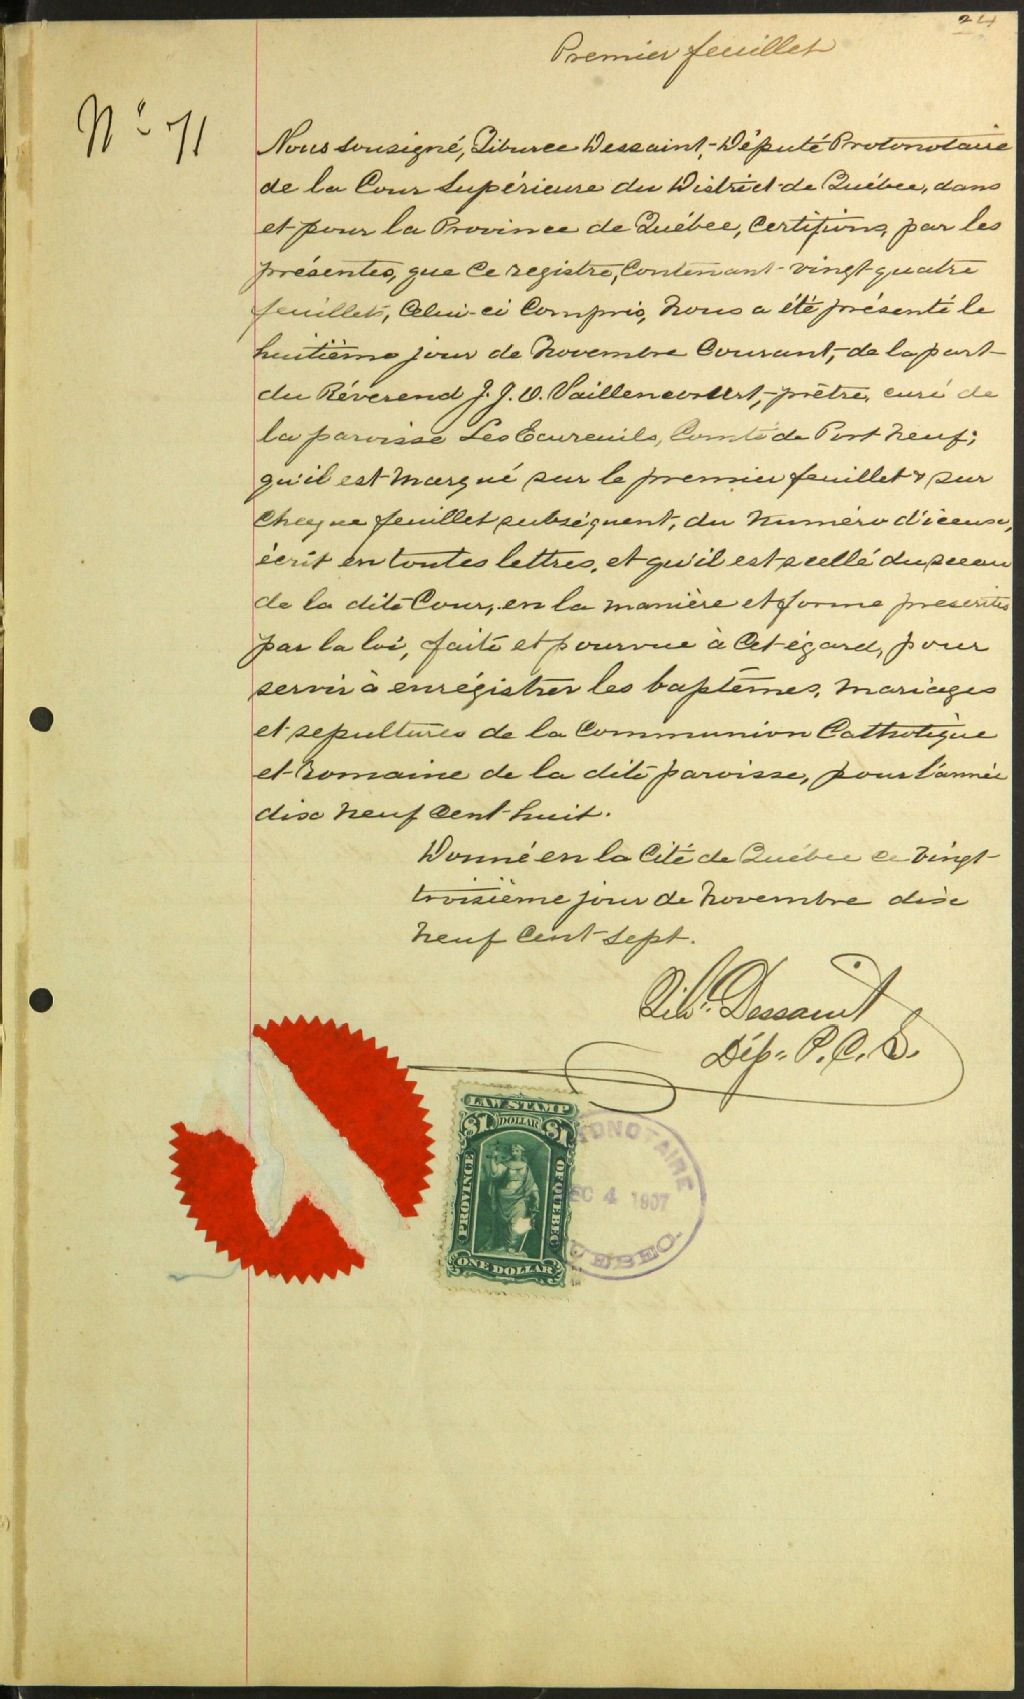 24
Premier feuillet
No 71
Nous sousigné, Tiburce Dessaint, Député Protonotaire
de la Cour Supérieure du District de Québec, dans
et pour la Province de Québec, Certifions, par les
présentes, que ce registre, Contenant vingt quatre
feuillets, Celui-ci Compris, nous a été présenté le
huitième jour de Novembre Courant, de la part
du Révérend J. J. O. Vaillencourt, prêtre, curé de
la paroisse Les Ecureuils, Comté de Port Neuf;
qu'il est marqué sur le premier feuillet & sur
chaque feuillet subséquent, du numéro d'iceux,
écrit en toutes lettres, et qu'il est scellé du sceau
de la dite Cour, en la manière et forme prescrites
par la loi, faite et pourvue à Cet égard, pour
servir à enrégistrer les baptêmes, mariages
et sepultures de la Communion Catholique
et Romaine de la dite paroisse, pour l'année
dix neuf Cent huit.
Donné en la Cité de Québec ce vingt
troisième jour de Novembre dix
neuf Cent sept.
Tibe. Dessaint
Dép. P. C. S.
LAW STAMP
$1 DOLLAR $1
PROVINCE OF QUEBEC
ONE DOLLAR
TONOTAIRE
EC 4 1907
UEBEC